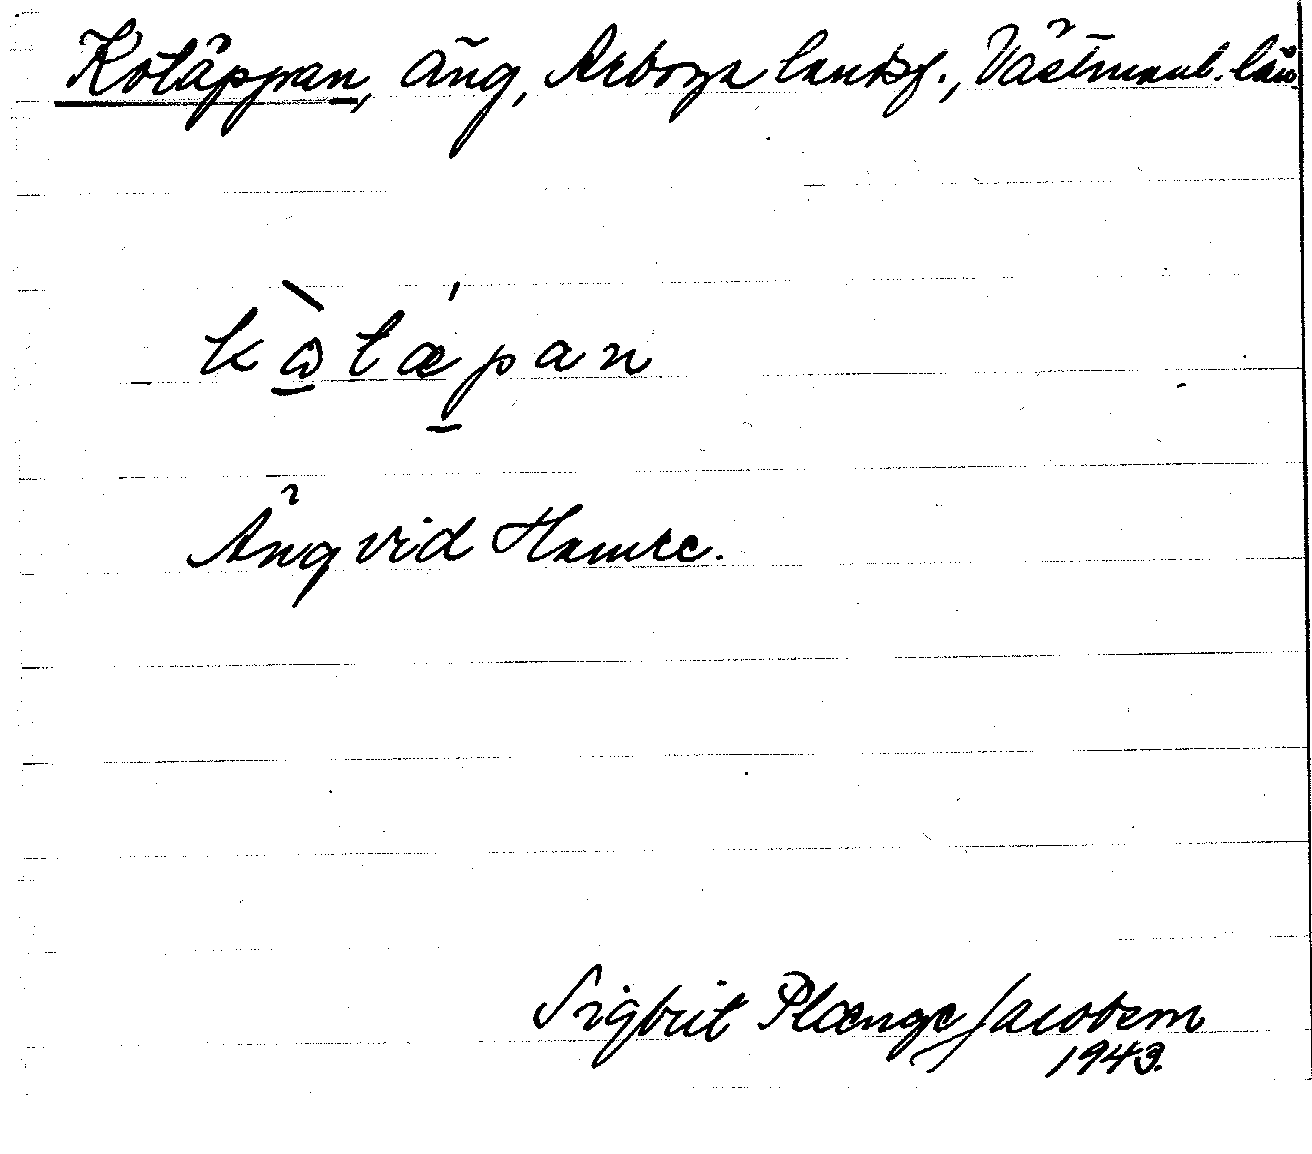 Kotäppan, äng, Arboga landsf., Västmanl. län
kὼtǽpan
Äng vid Hamre.
Sigbrit Plænge Jacobson
1943.